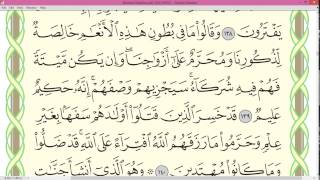 يَفْتَرُونَ ١٣٨ وَقَالُوا۟ مَا فِى بُطُونِ هَـٰذِهِ ٱلْأَنْعَـٰمِ خَالِصَةٌ
لِّذُكُورِنَا وَمُحَرَّمٌ عَلَىٰٓ أَزْوَٰجِنَا ۖ وَإِن يَكُن مَّيْتَةً
فَهُمْ فِيهِ شُرَكَآءُ ۚ سَيَجْزِيهِمْ وَصْفَهُمْ ۚ إِنَّهُۥ حَكِيمٌ
عَلِيمٌ ١٣٩ قَدْ خَسِرَ ٱلَّذِينَ قَتَلُوٓا۟ أَوْلَـٰدَهُمْ سَفَهًۢا بِغَيْرِ
عِلْمٍ وَحَرَّمُوا۟ مَا رَزَقَهُمُ ٱللَّهُ ٱفْتِرَآءً عَلَى ٱللَّهِ ۚ قَدْ ضَلُّوا۟
وَمَا كَانُوا۟ مُهْتَدِينَ ١٤٠ ۞ وَهُوَ ٱلَّذِىٓ أَنشَأَ جَنَّـٰتٍ